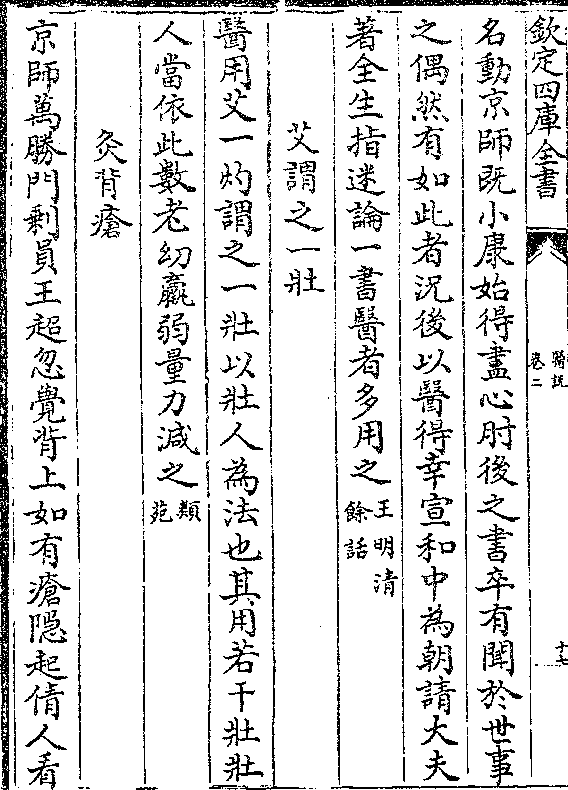 欽定四庫全書
醫說
卷二
十七
名動京師既小康始得盡心肘後之書卒有聞於世事
之偶然有如此者況後以醫得幸宣和中為朝請大夫
著全生指迷論一書醫者多用之王明清
餘話
艾謂之一壯
醫用艾一灼謂之一壯以壯人為法也其用若干壯壯
人當依此數老幼羸弱量力減之類
苑
灸背瘡
京師萬勝門剩員王超忽覺背上如有瘡隱起倩人看